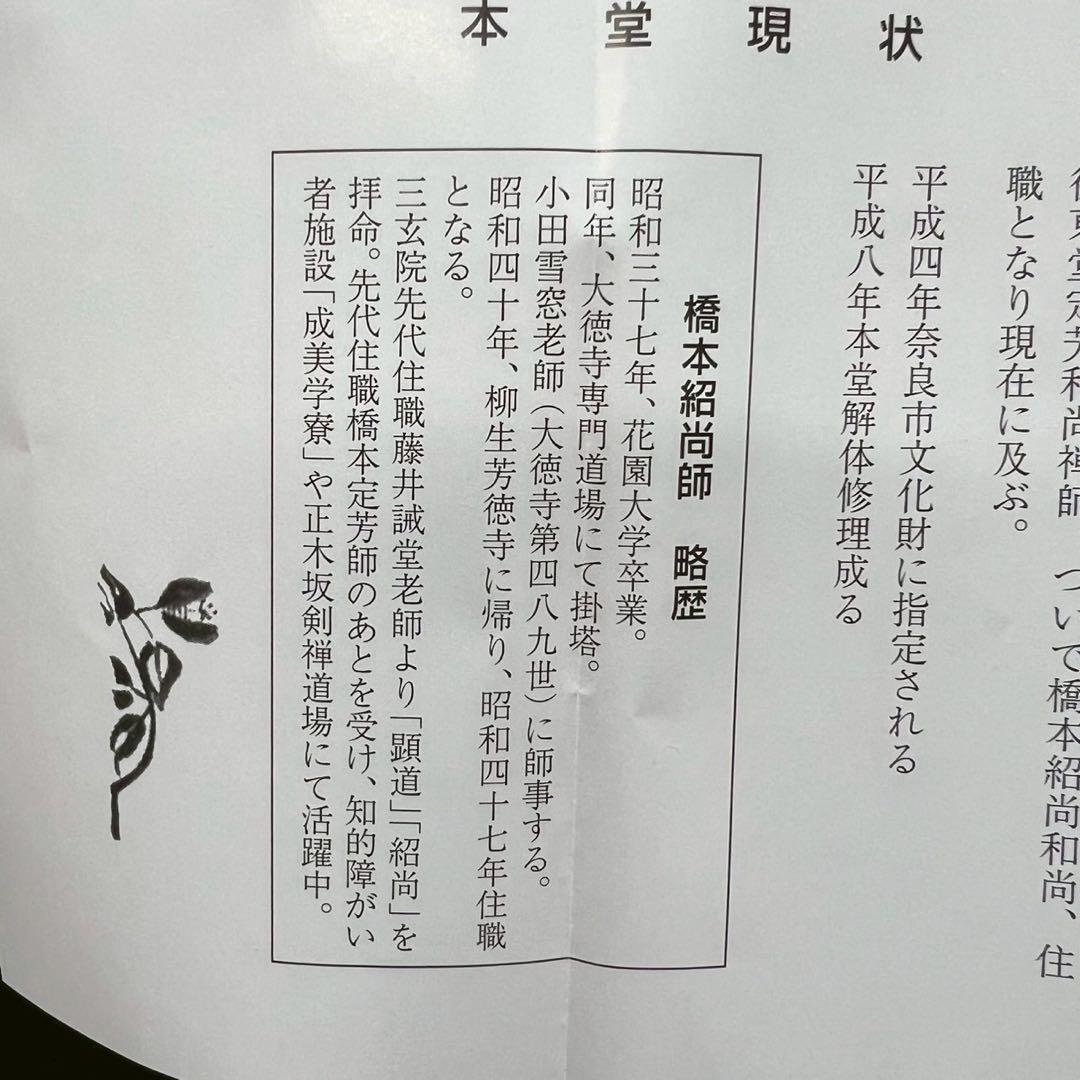 本堂現状
東堂定芳和尚禅師　ついで橋本紹尚和尚、住
職となり現在に及ぶ。
平成四年奈良市文化財に指定される
平成八年本堂解体修理成る
橋本紹尚師　略歴
昭和三十七年、花園大学卒業。
同年、大徳寺専門道場にて掛塔。
小田雪窓老師（大徳寺第四八九世）に師事する。
昭和四十年、柳生芳徳寺に帰り、昭和四十七年住職
となる。
三玄院先代住職藤井誡堂老師より「顕道」「紹尚」を
拝命。先代住職橋本定芳師のあとを受け、知的障がい
者施設「成美学寮」や正木坂剣禅道場にて活躍中。